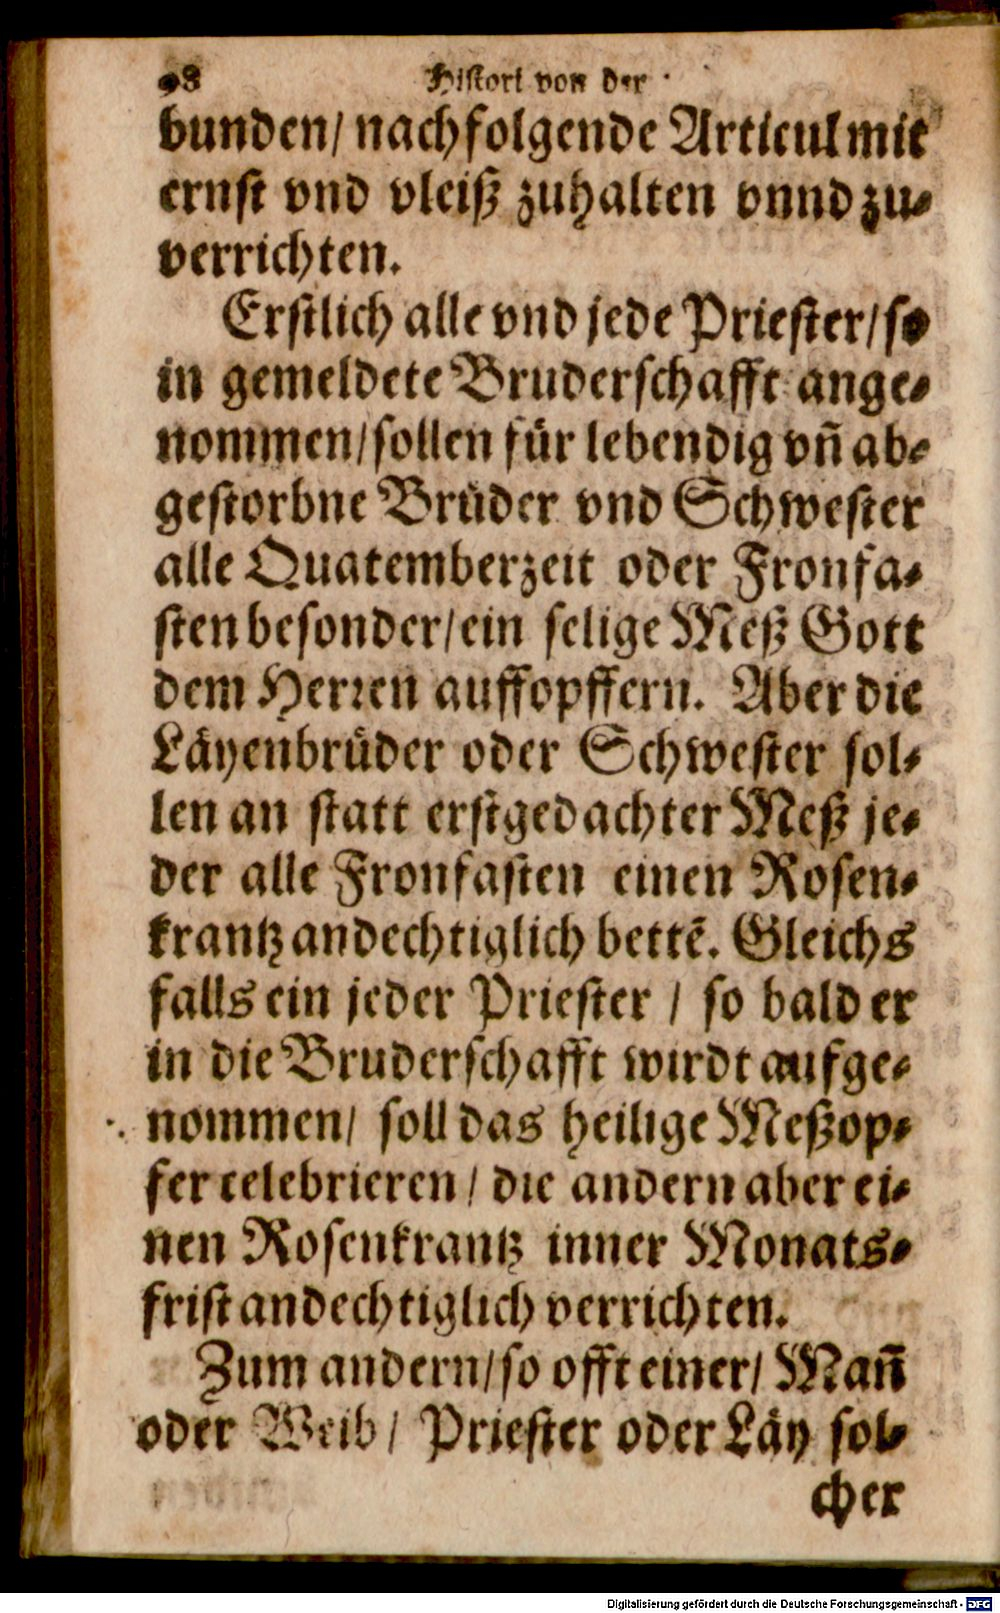 98 Histori von der
bunden/ nachfolgende Articul mit
ernst vnd vleiß zuhalten vnnd zu-
verrichten.
Erstlich alle vnd jede Priester/ so
in gemeldete Bruderschafft ange-
nommen/ sollen für lebendig vñ ab-
gestorbne Brüder vnd Schwester
alle Quatemberzeit oder Fronfa-
sten besonder/ ein selige Meß Gott
dem Herren auffopffern. Aber die
Läyenbrüder oder Schwester sol-
len an statt erstgedachter Meß je-
der alle Fronfasten einen Rosen-
krantz andechtiglich bettẽ. Gleichs
falls ein jeder Priester / so bald er
in die Bruderschafft wirdt aufge-
nommen/ soll das heilige Meßop-
fer celebrieren / die andern aber ei-
nen Rosenkrantz inner Monats-
frist andechtiglich verrichten.
Zum andern/ so offt einer/ Mañ
oder Weib / Priester oder Läy sol-
cher
Digitalisierung gefördert durch die Deutsche Forschungsgemeinschaft - DFG